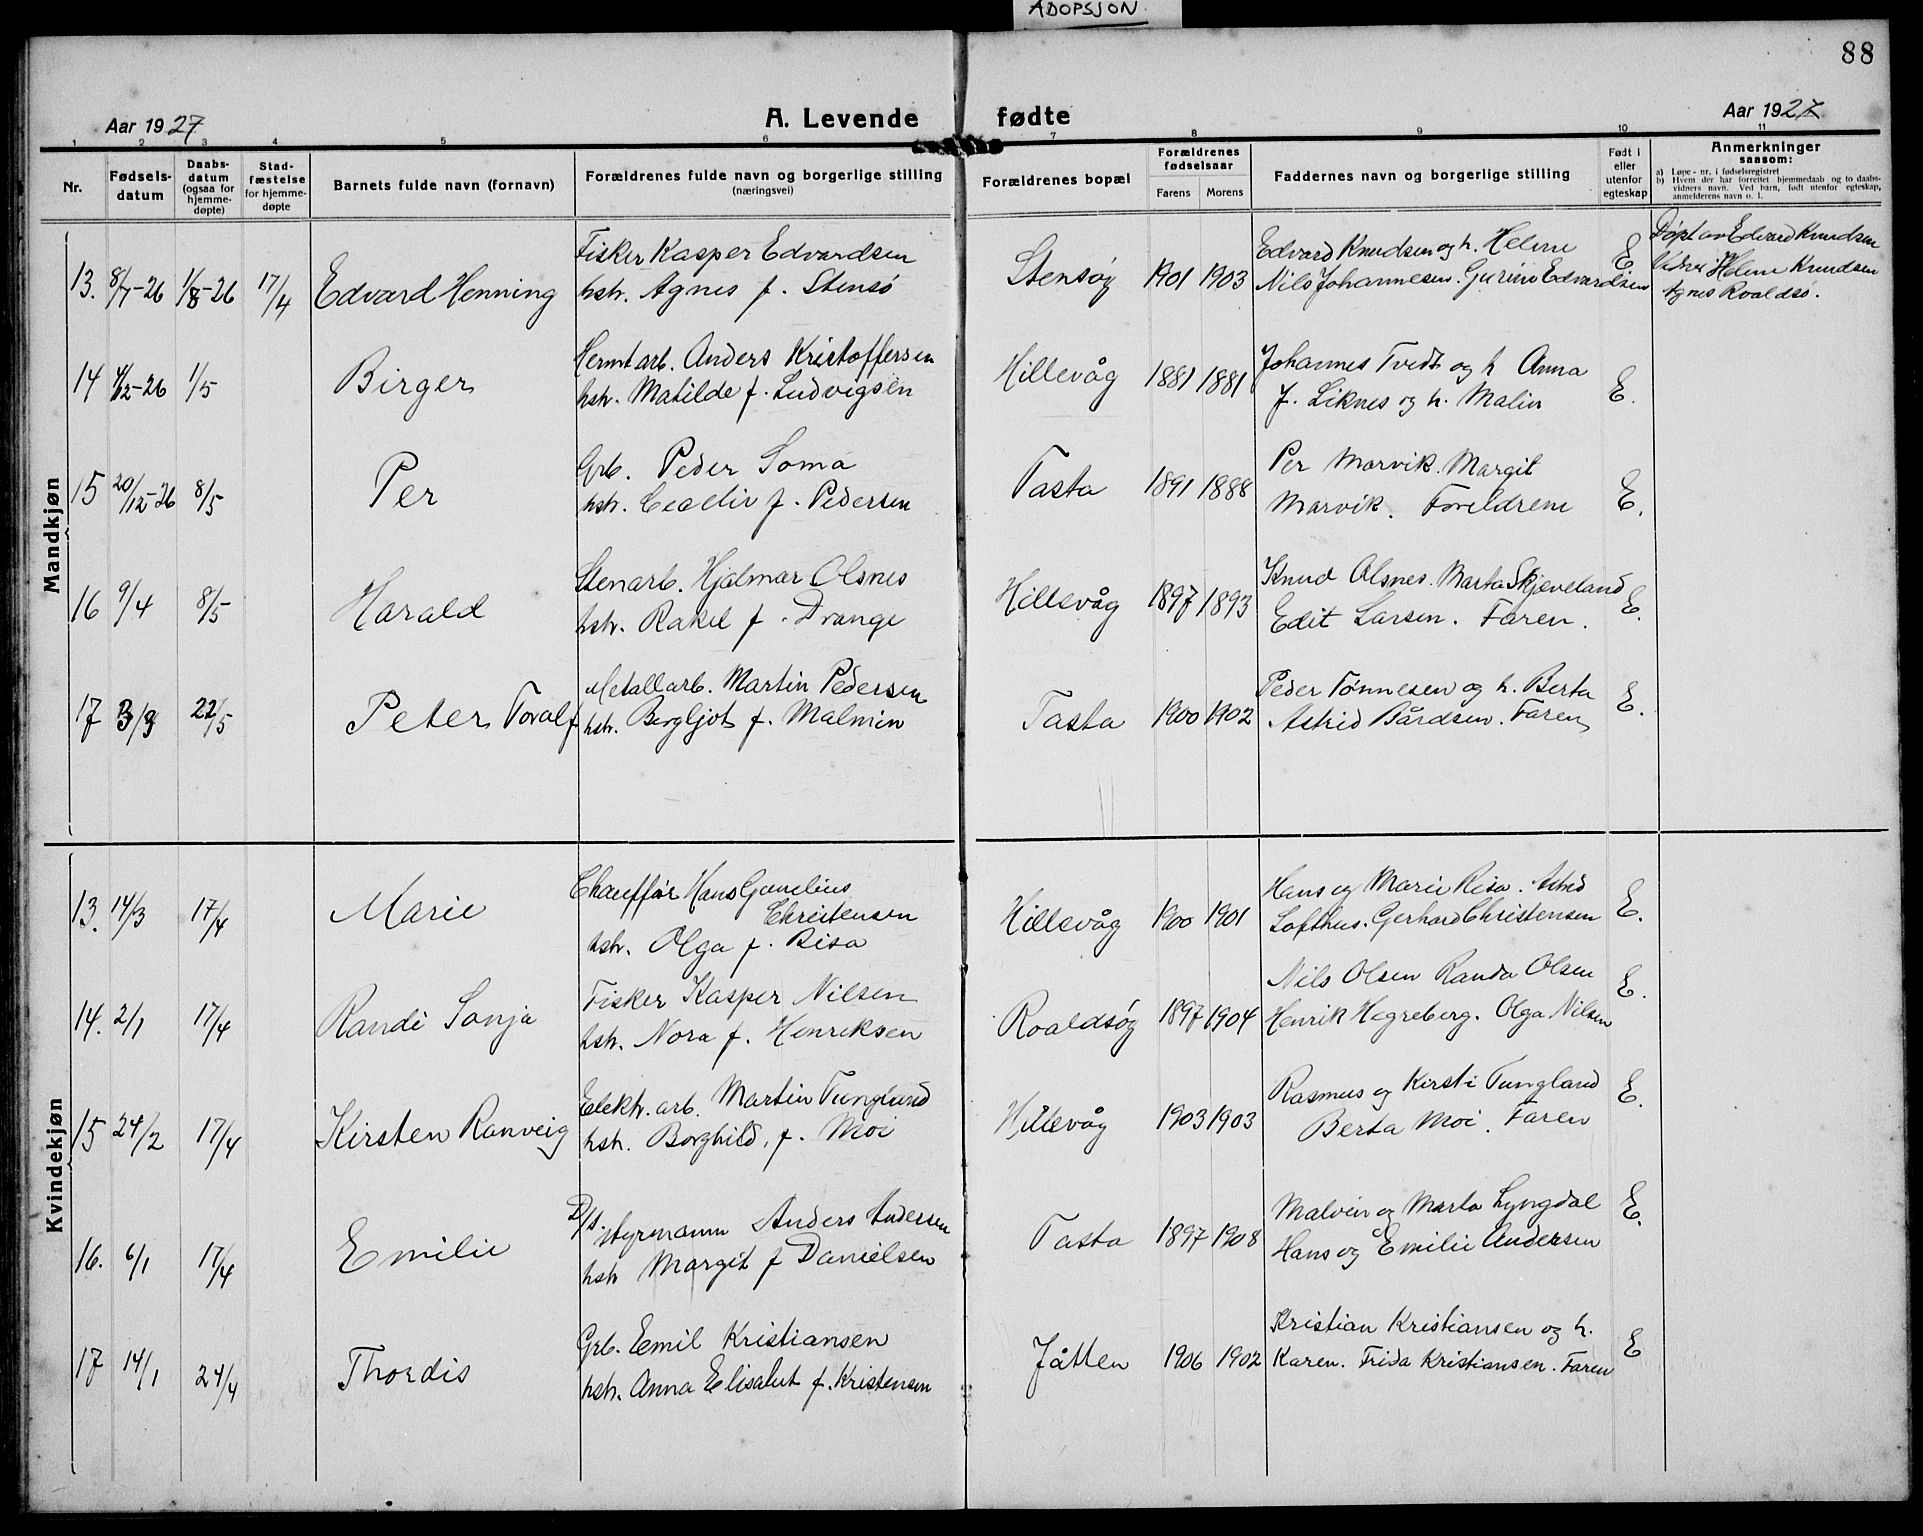 ADOPSJON
88
Aar 1927
A. Levende fødte
Aar 1927
1 2 3 4 5 6 7 8 9 10 11
Nr.
Fødsels-
datum
Daabs-
datum
(ogsaa for
hjemme-
døpte)
Stad-
fæstelse
for hjemme-
døpte
Barnets fulde navn (fornavn)
Forældrenes fulde navn og borgerlige stilling
(næringsvei)
Forældrenes bopæl
Forældrenes
fødselsaar
Farens Morens
Faddernes navn og borgerlige stilling
Født i
eller
utenfor
egteskap
Anmerkninger
saasom:
a) Løpe-nr. i fødselsregistret
b) Hvem der har forrettet hjemmedaab og to daabs-
vidners navn. Ved barn, født utenfor egteskap,
anmelderens navn o. l.
Mandkjøn
13. 8/7-26 1/8-26 17/4 Edvard Henning
Fisker Kasper Edvardsen
hstr. Agnes f. Stensø
Stensøy 1901 1903
Edvard Knudsen og h. Helene
Nils Johannesen. Gurine Edvardsen
E
Døpt av Edvard Knudsen
Vidner: Helene Knudsen
Agnes Roaldsø.
14 4/12-26 1/5 Birger
Hermt.arb. Anders Kristoffersen
hstr. Matilde f. Ludvigsen
Hillevåg 1881 1881
Johannes Tvedt og h Anna
J. Liknes og h. Malin
E.
15 20/12-26 8/5 Per
Grb. Peder Soma
hstr. f. Pedersen
Tasta 1891 1888
Per Marvik. Margit
Marvik. Foreldrene
E.
16 9/4 8/5 Harald
Stenarb. Hjalmar Olsnes
hstr. Rakel f. Drange
Hillevåg 1897 1893
Knud Olsnes. Marta Skjeveland
Edit Larsen. Faren.
E.
17 3/3 22/5 Peter Toralf
Metallarb. Martin Pedersen
hstr. Bergljot f. Malmin
Tasta 1900 1902
Peder Tønnesen og h. Berta
Astrid Bårdsen. Faren
E.
Kvindekjøn
13. 14/3 17/4 Marie
Chauffør Hans Cornelius
Christensen
hstr. Olga f. Risa
Hillevåg 1900 1901
Hans og Marie Risa. Astrid
Lofthus. Gerhard Christensen
E.
14. 2/1 17/4 Randi Sonja
Fisker Kasper Nilsen
hstr. Nora f. Henriksen
Roaldsøy 1897 1904
Nils Olsen Randa Olsen
Henrik Hegreberg. Olga Nilsen
E.
15 24/2 17/4 Kirsten Ranveig
Elektr. arb. Martin Tungland
hstr. Borghild, f. Moi
Hillevåg 1903 1903
Rasmus og Kirsti Tungland
Berta Moi. Faren
E.
16. 6/1 17/4 Emilie
D/S. styrmann Anders Andersen
hstr Margit f Danielsen
Tasta 1897 1908
Malvin og Marta Lyngdal
Hans og Emilie Andersen
E.
17 14/1 24/4 Thordis
Grb. Emil Kristiansen
hstr. Anna Elisabet f. Kristensen
Jåtten 1906 1902
Kristian Kristiansen og h.
Karen. Frida Kristiansen. Faren
E